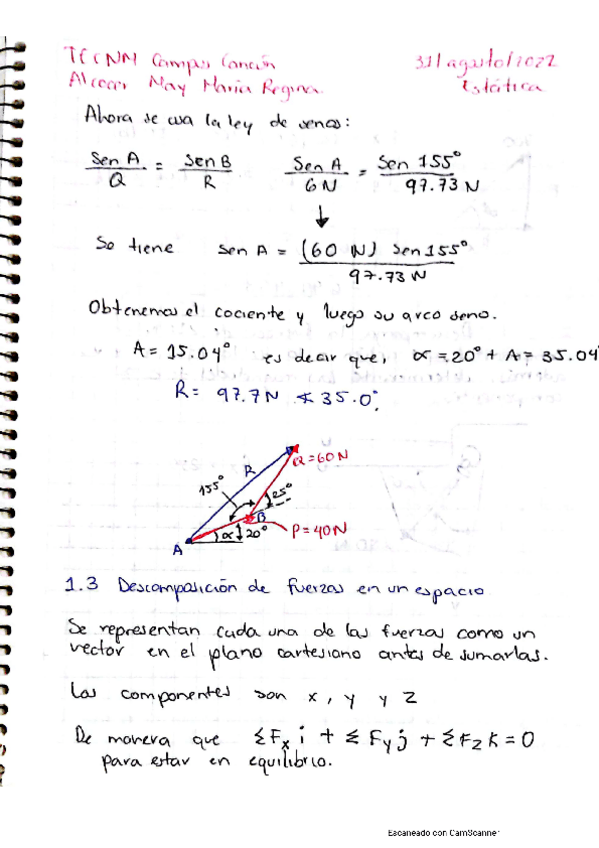 TECNM Campus Cancún 31/agosto/2022
Alcocer May María Regina. Estática
Ahora se usa la ley de senos:
Sen A / Q = Sen B / R    Sen A / 6 N = Sen 155° / 97.73 N
↓
Se tiene sen A = (60 N) sen 155° / 97.73 N
Obtenemos el cociente y luego su arco seno.
A = 15.04° es decir que, α = 20° + A = 35.04
R = 97.7 N ∢ 35.0°
Q = 60 N
R
155°
25°
B
α 20° P = 40 N
A
1.3 Descomposición de fuerzas en un espacio
Se representan cada una de las fuerzas como un
vector en el plano cartesiano antes de sumarlas.
Las componentes son x, y y z
De manera que ΣFx i + ΣFy j + ΣFz k = 0
para estar en equilibrio.
Escaneado con CamScanner